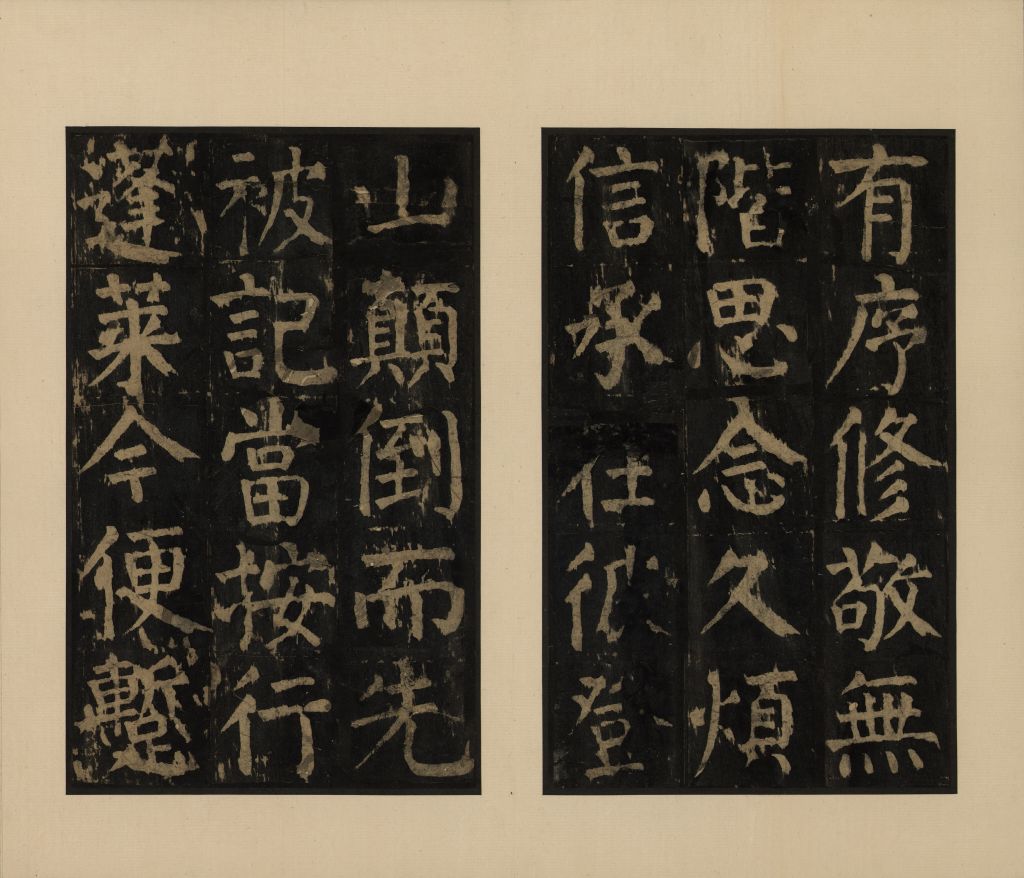 有序修敬無
階思念久煩
信承在彼登
山顛倒而先
被記當按行
蓬萊今便蹔